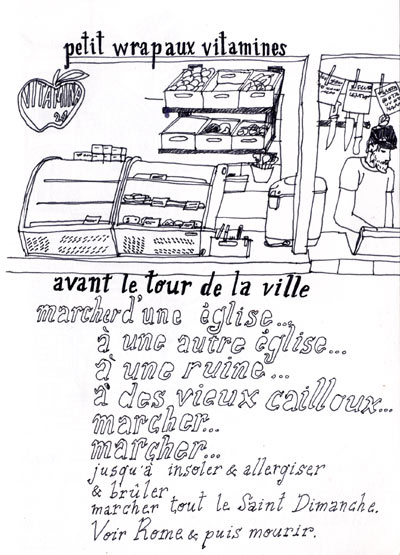 petit wrapaux vitamines
VITAMINES
avant le tour de la ville
marcher d'une église...
à une autre église...
à une ruine...
à des vieux cailloux...
marcher...
marcher...
jusqu'à insoler & allergiser
& brûler
marcher tout le Saint Dimanche.
Voir Rome & puis mourir.